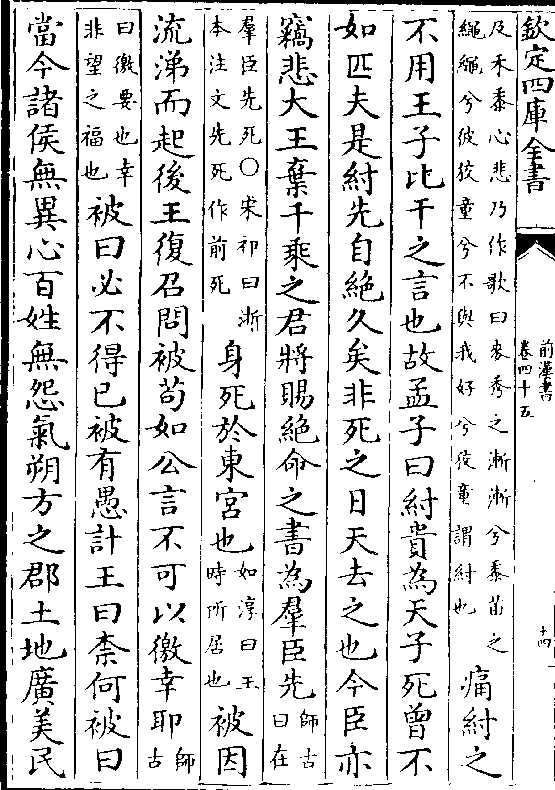 欽定四庫全書
前漢書
卷四十五
十四
及禾黍心悲乃作歌曰麥秀之漸漸兮黍苗之
繩繩兮彼狡童兮不與我好兮狡童謂紂也
痛紂之
不用王子比干之言也故孟子曰紂貴為天子死曾不
如匹夫是紂先自絕久矣非死之日天去之也今臣亦
竊悲大王棄千乘之君將賜絕命之書為羣臣先
師古
曰在
羣臣先死○宋祁曰浙
本注文先死作前死
身死於東宮也
如淳曰王
時所居也
被因
流涕而起後王復召問被苟如公言不可以徼幸耶
師
古
曰徼要也幸
非望之福也
被曰必不得已被有愚計王曰柰何被曰
當今諸侯無異心百姓無怨氣朔方之郡土地廣美民